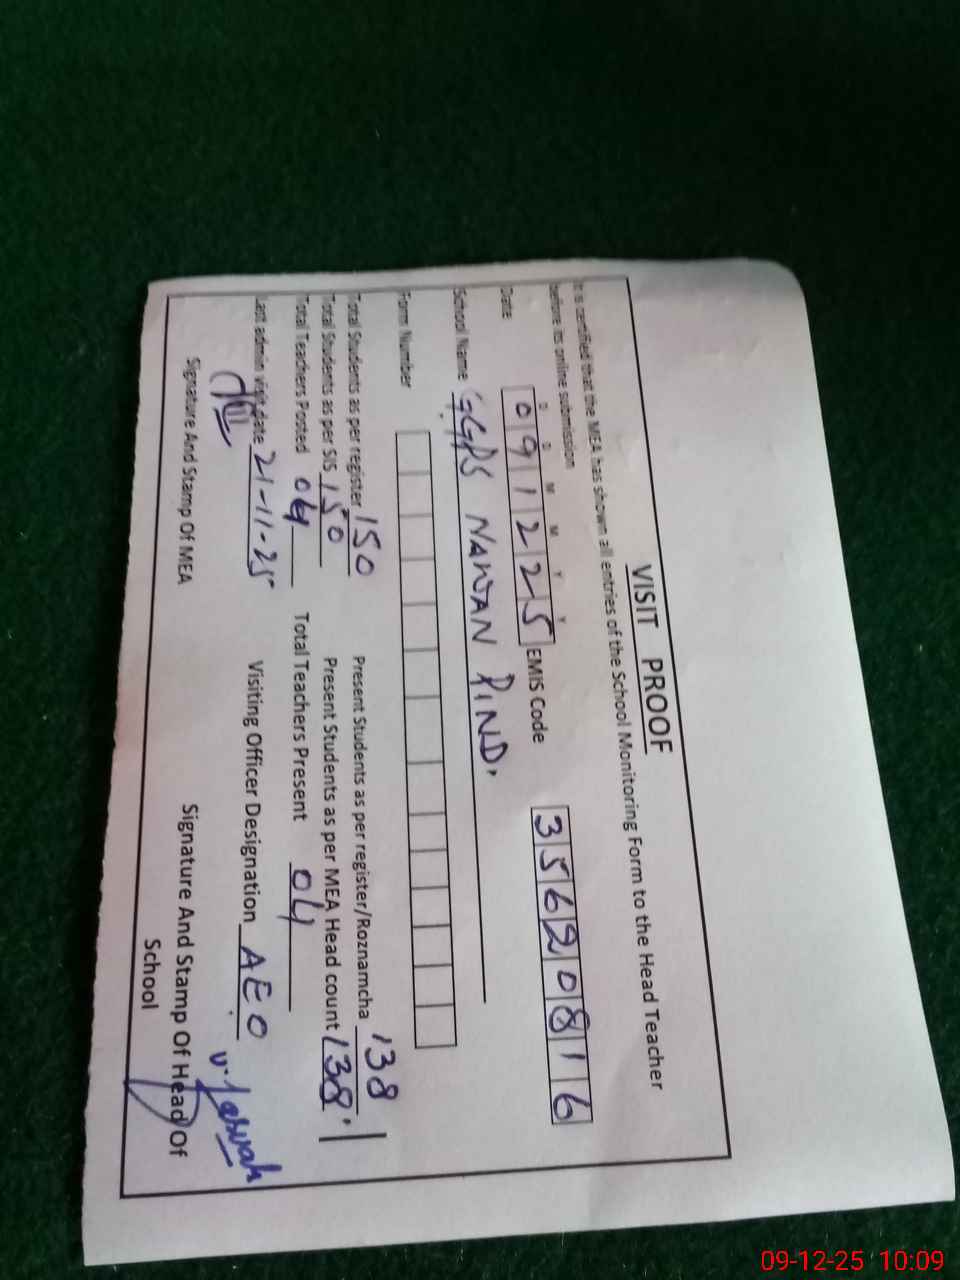 VISIT PROOF
It is certified that the MEA has shown all entries of the School Monitoring Form to the Head Teacher
before its online submission
D D M M Y Y
Date 0 9 1 2 2 5 EMIS Code 3 5 6 2 0 8 1 6
School Name GGPS NAWAN PIND.
Form Number
Total Students as per register 150 Present Students as per register/Roznamcha 138
Total Students as per SIS 150 Present Students as per MEA Head count 138
Total Teachers Posted 04 Total Teachers Present 04
Last admin visit date 21-11-25 Visiting Officer Designation AEO
Signature And Stamp Of MEA Signature And Stamp Of Head Of
School
09-12-25 10:09